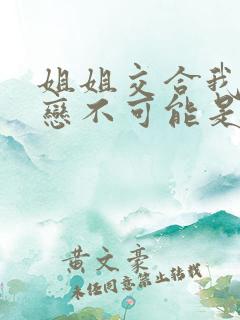 姐姐交合我
戀不可能是
黃文豪
未任同意禁止转载